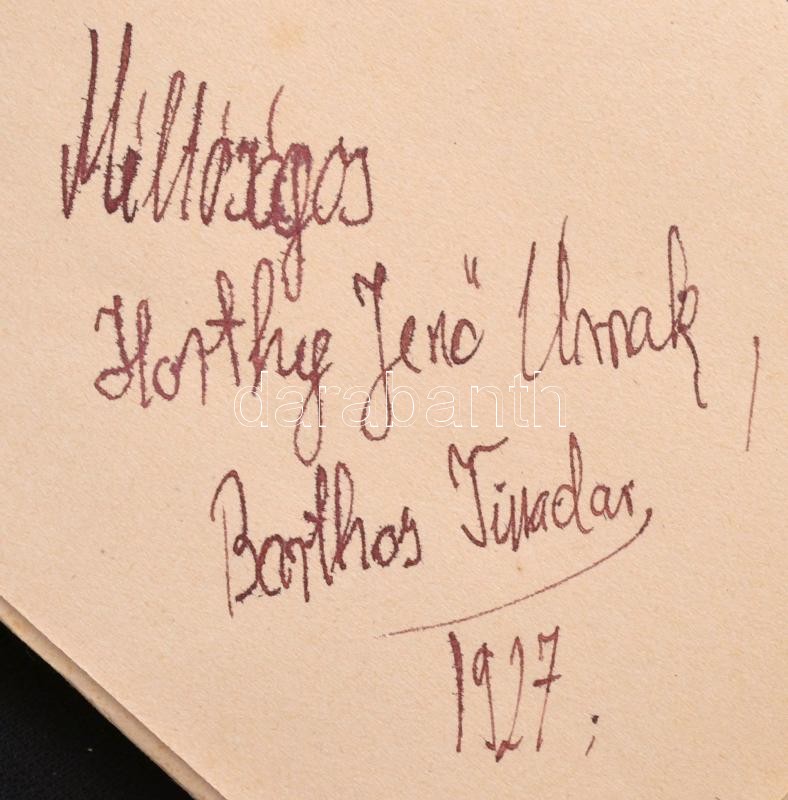 Méltóságos
Horthy Jenő Urnak,
darabanth
Barthos Tivadar
1927.